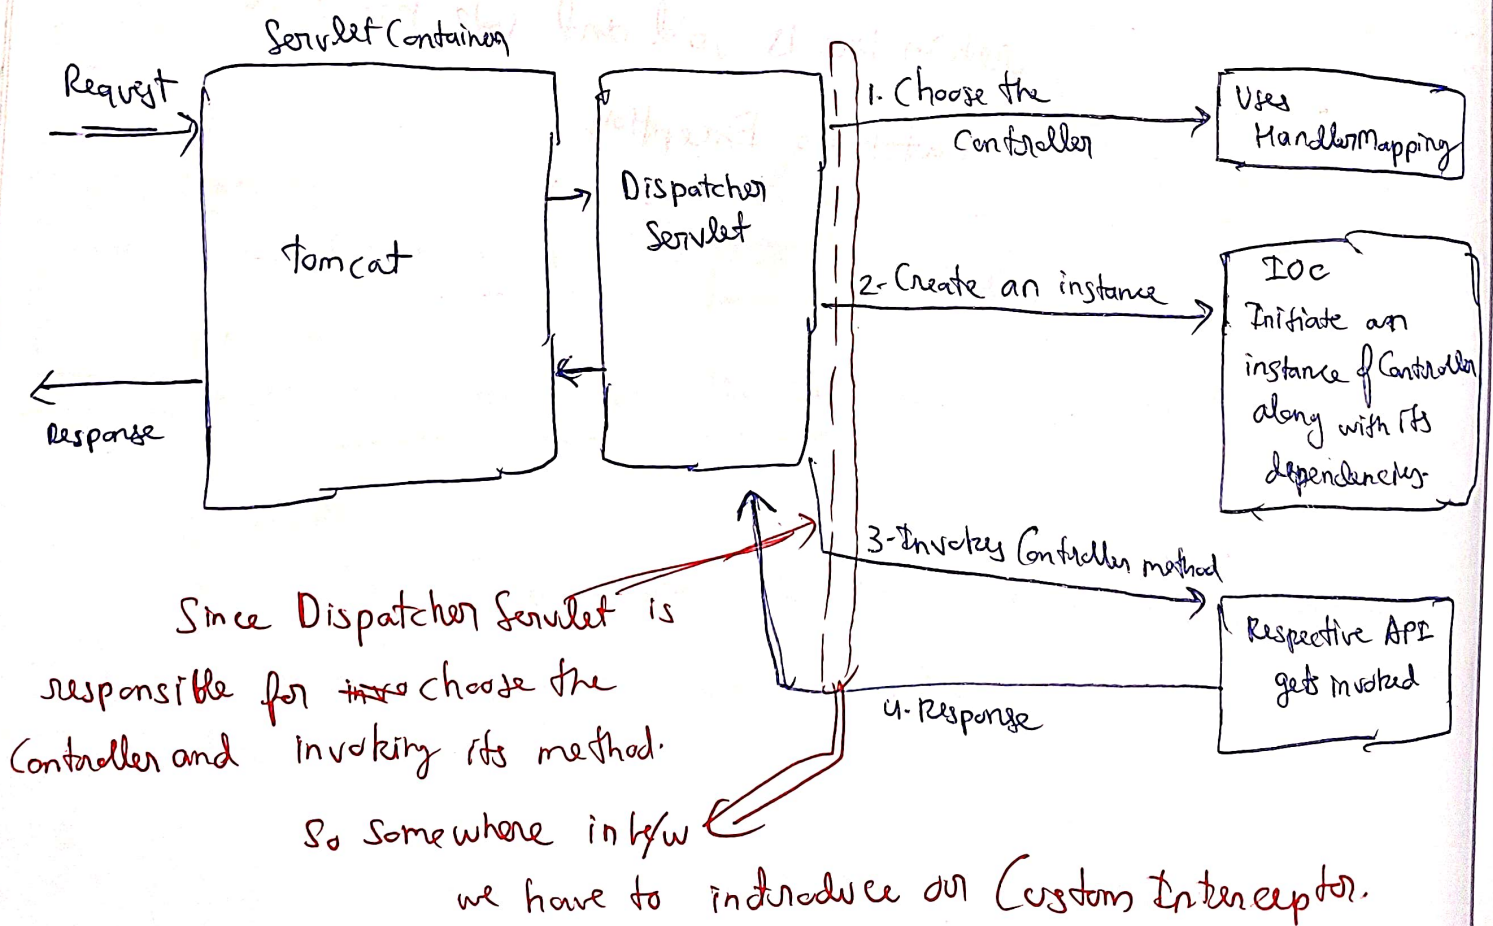 Servlet Container
Request
tomcat
Response
Dispatcher
Servlet
1. Choose the
Controller
Uses
HandlerMapping
2- Create an instance
IOC
Initiate an
instance of Controller
along with its
dependencies.
3- Invokes Controller method
Respective API
gets invoked
4. Response
Since Dispatcher Servlet is
responsible for choose the
Controller and invoking its method.
So somewhere in b/w
we have to introduce our Custom Interceptor.